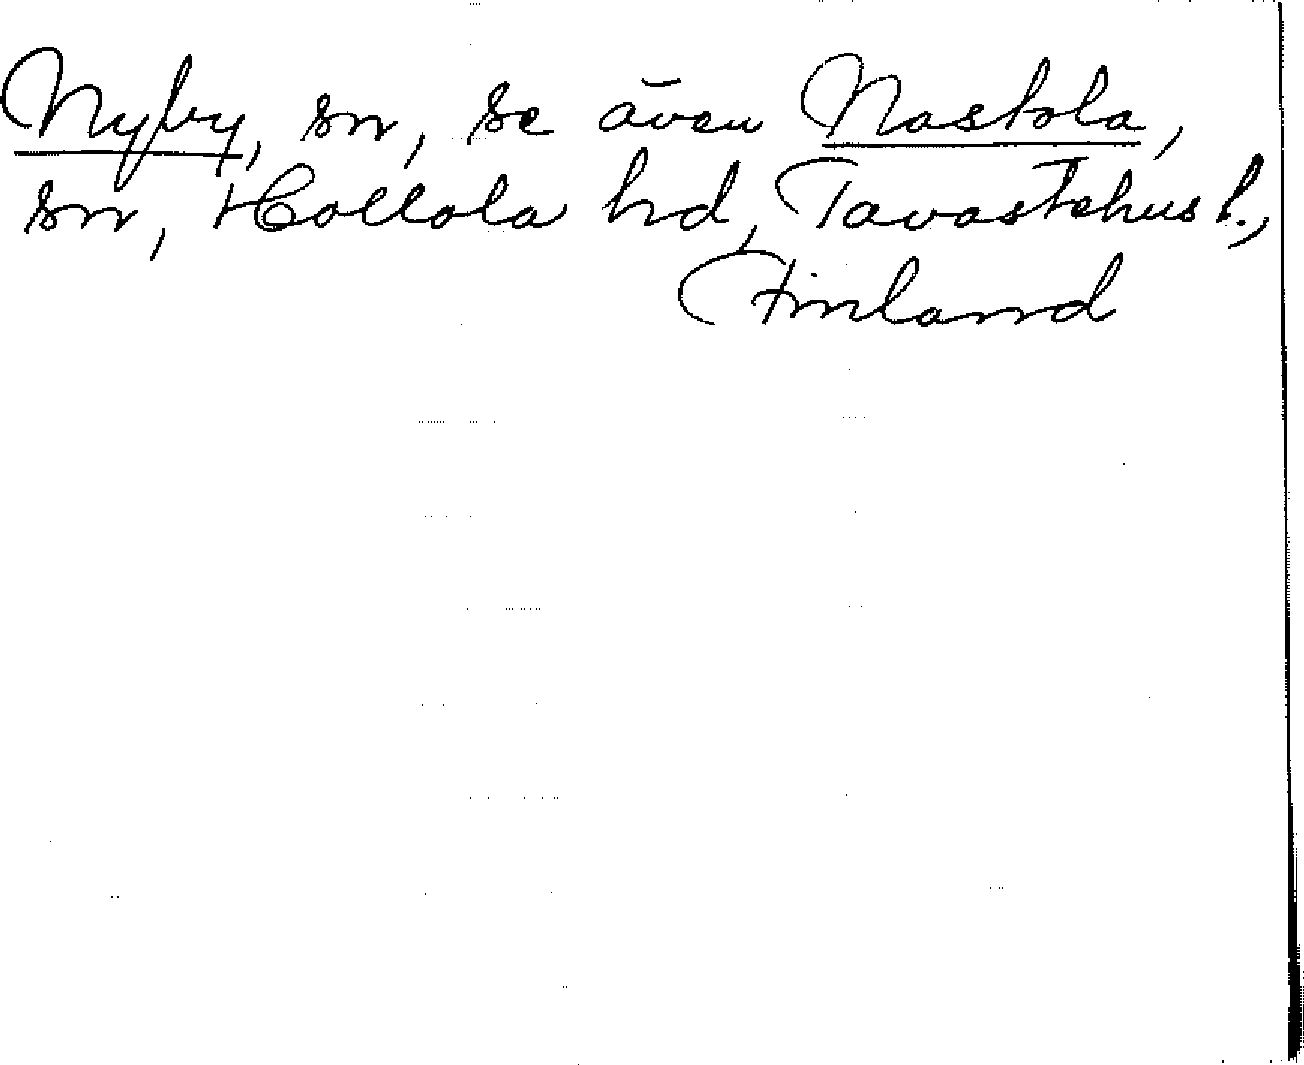 Nyby, sn, se även Nastola,
sn, Hollola hd, Tavastehus l.,
Finland